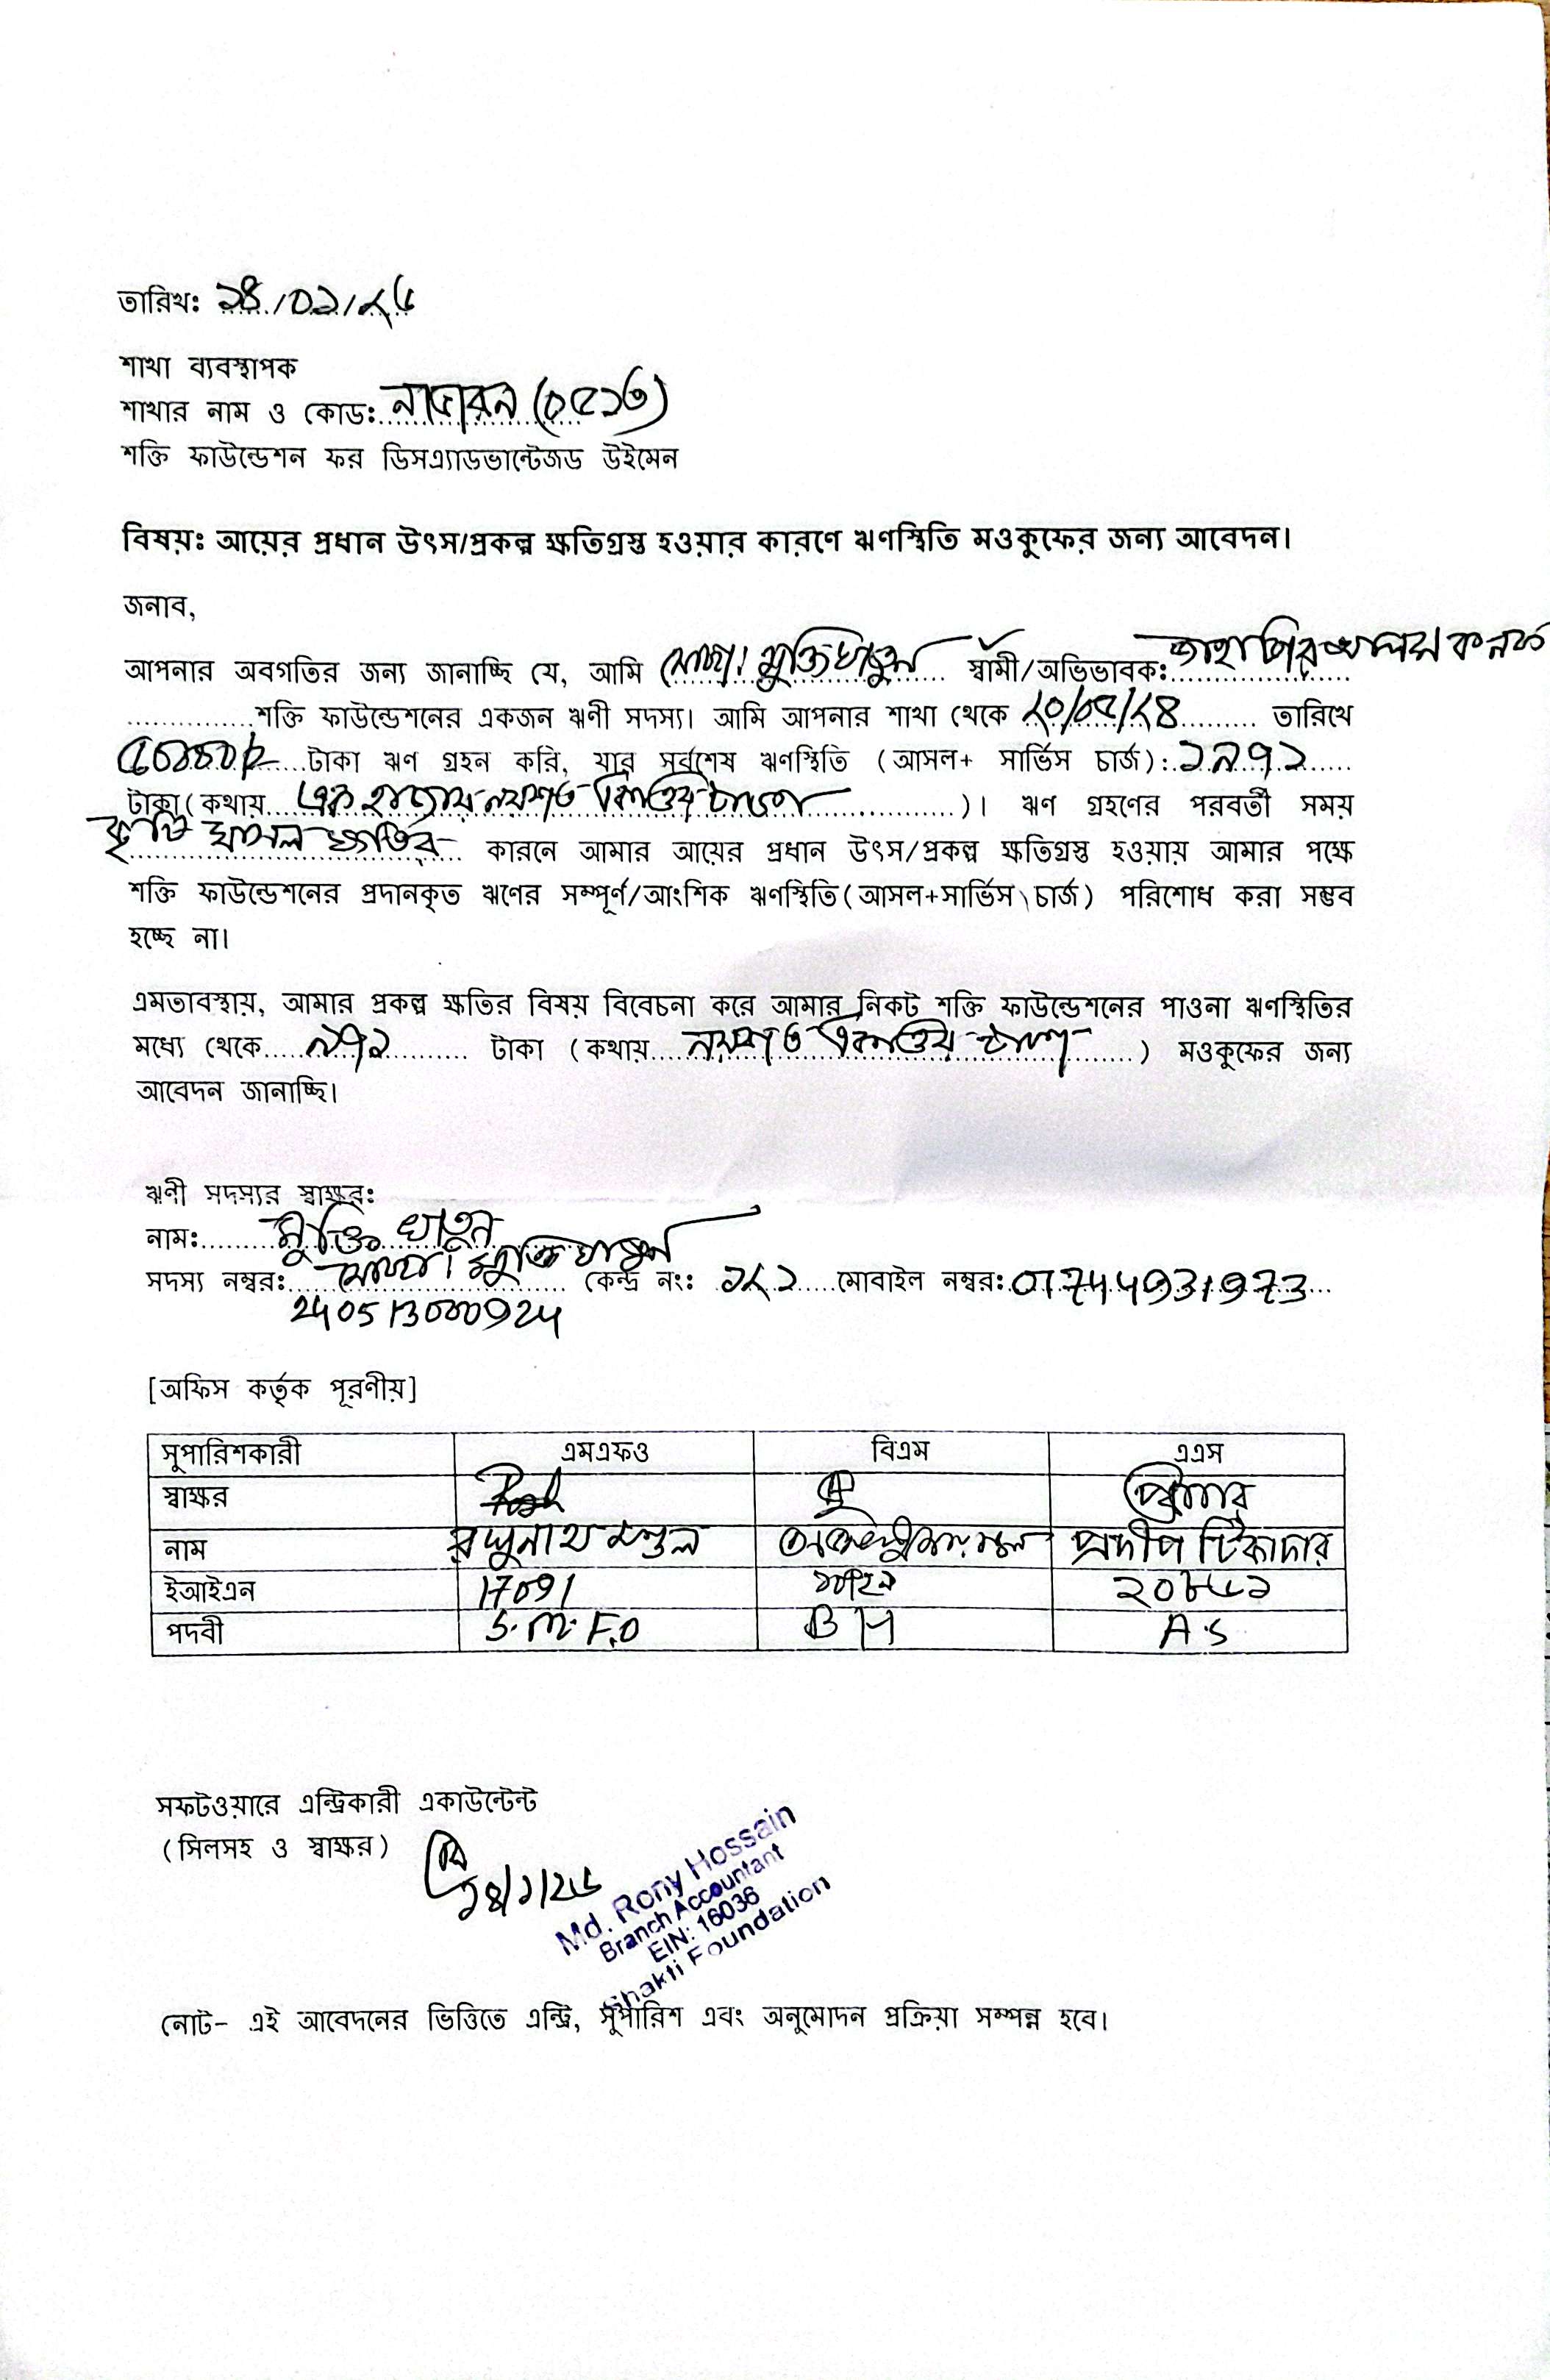 তারিখঃ ১৪/০১/২৬
শাখা ব্যবস্থাপক
শাখার নাম ও কোডঃ নাভারন (০৫১৩)
শক্তি ফাউন্ডেশন ফর ডিসএ্যাডভান্টেজড উইমেন
বিষয়ঃ আয়ের প্রধান উৎস/প্রকল্প ক্ষতিগ্রস্ত হওয়ার কারণে ঋণস্থিতি মওকুফের জন্য আবেদন।
জনাব,
আপনার অবগতির জন্য জানাচ্ছি যে, আমি মোছাঃ মুক্তি খাতুন স্বামী/অভিভাবকঃ
শক্তি ফাউন্ডেশনের একজন ঋণী সদস্য। আমি আপনার শাখা থেকে ২০/০৫/২৪ তারিখে
টাকা ঋণ গ্রহন করি, যার সর্বশেষ ঋণস্থিতি (আসল+ সার্ভিস চার্জ): ১৯৭১
টাকা (কথায় এক হাজার নয়শত একাত্তর টাকা )। ঋণ গ্রহণের পরবর্তী সময়
কৃষি ফসল ক্ষতির কারনে আমার আয়ের প্রধান উৎস/প্রকল্প ক্ষতিগ্রস্ত হওয়ায় আমার পক্ষে
শক্তি ফাউন্ডেশনের প্রদানকৃত ঋণের সম্পূর্ণ/আংশিক ঋণস্থিতি(আসল+সার্ভিস চার্জ) পরিশোধ করা সম্ভব
হচ্ছে না।
এমতাবস্থায়, আমার প্রকল্প ক্ষতির বিষয় বিবেচনা করে আমার নিকট শক্তি ফাউন্ডেশনের পাওনা ঋণস্থিতির
মধ্যে থেকে ৯৭১ টাকা (কথায় নয়শত একাত্তর টাকা ) মওকুফের জন্য
আবেদন জানাচ্ছি।
ঋণী সদস্যর স্বাক্ষর:
নাম: মুক্তি খাতুন
সদস্য নম্বর: মোছাঃ মুক্তি খাতুন কেন্দ্র নং: ১২১ মোবাইল নম্বর: 01744931973
240513000924
[অফিস কর্তৃক পূরণীয়]
সুপারিশকারী এমএফও বিএম এএস
স্বাক্ষর
নাম রঘুনাথ মন্ডল প্রদীপ টিকাদার
ইআইএন 17091 ২০৮৬১
পদবী S.M.F.O BM A.S
সফটওয়ারে এন্ট্রিকারী একাউন্টেন্ট
(সিলসহ ও স্বাক্ষর) ১৪/১/২৬
Md. Rony Hossain
Branch Accountant
EIN: 16036
Shakti Foundation
নোট- এই আবেদনের ভিত্তিতে এন্ট্রি, সুপারিশ এবং অনুমোদন প্রক্রিয়া সম্পন্ন হবে।